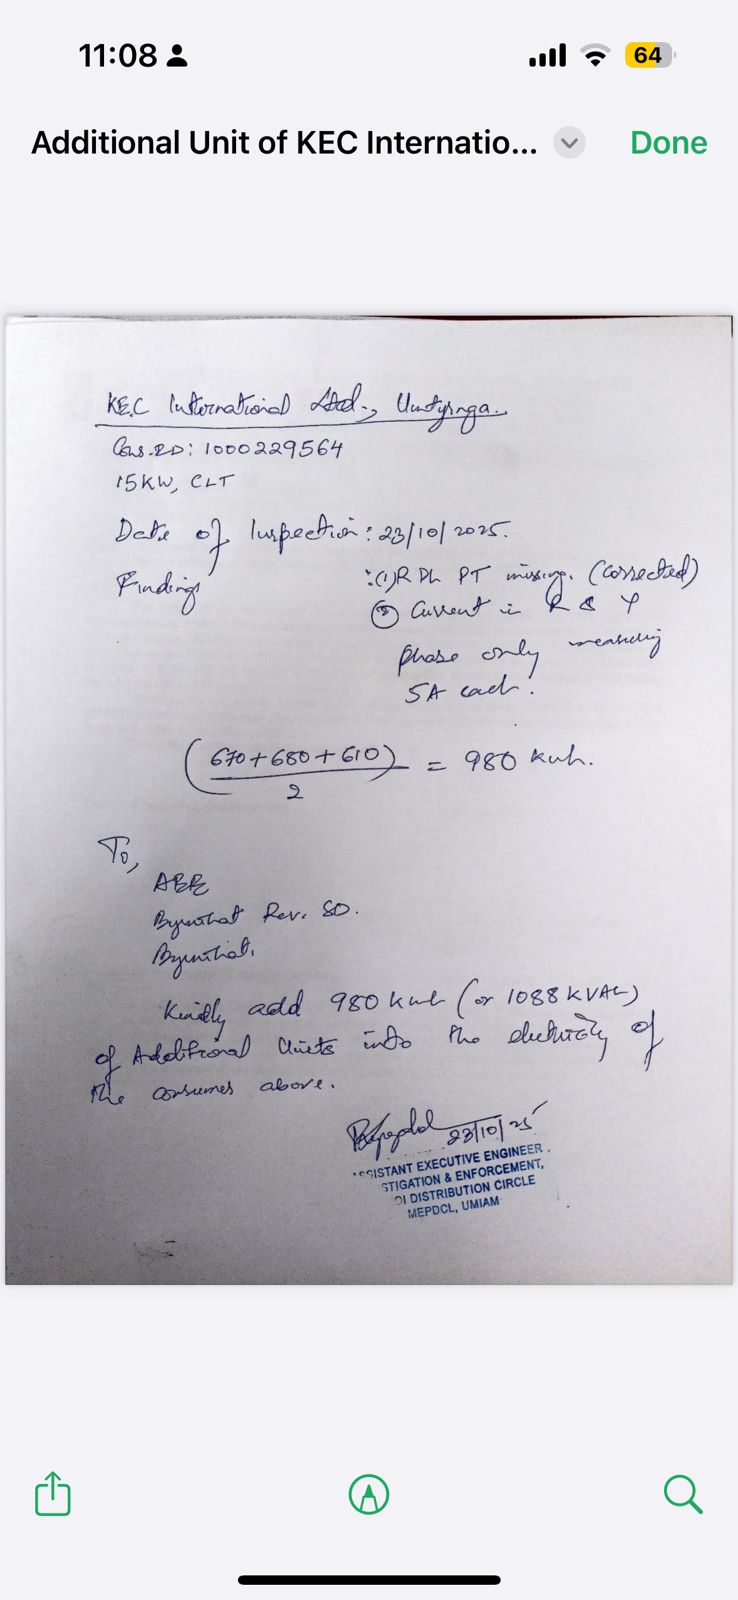 11:08
64
Additional Unit of KEC Internatio...
Done
KEC International Ltd., Umtyrnga.
Cons.ID: 1000229564
15KW, CLT
Date of Inspection: 23/10/2025.
Findings :(1) R Ph PT missing. (corrected)
② Current in R & Y
phase only measuring
5A each.
(670+680+610)
2
= 980 kwh.
To,
AEE
Byrnihat Rev. SD.
Byrnihat.
Kindly add 980 kwh (or 1088 KVAh)
of Additional Units into the electricity of
the consumer above.
23/10/25
ASSISTANT EXECUTIVE ENGINEER
STIGATION & ENFORCEMENT,
OI DISTRIBUTION CIRCLE
MEPDCL, UMIAM